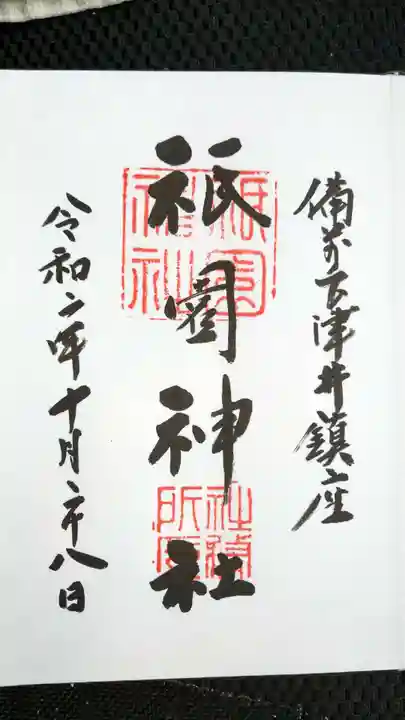 備前古津井鎮座
祇園神社
祇園神社
社務所印
令和二年十月二十八日